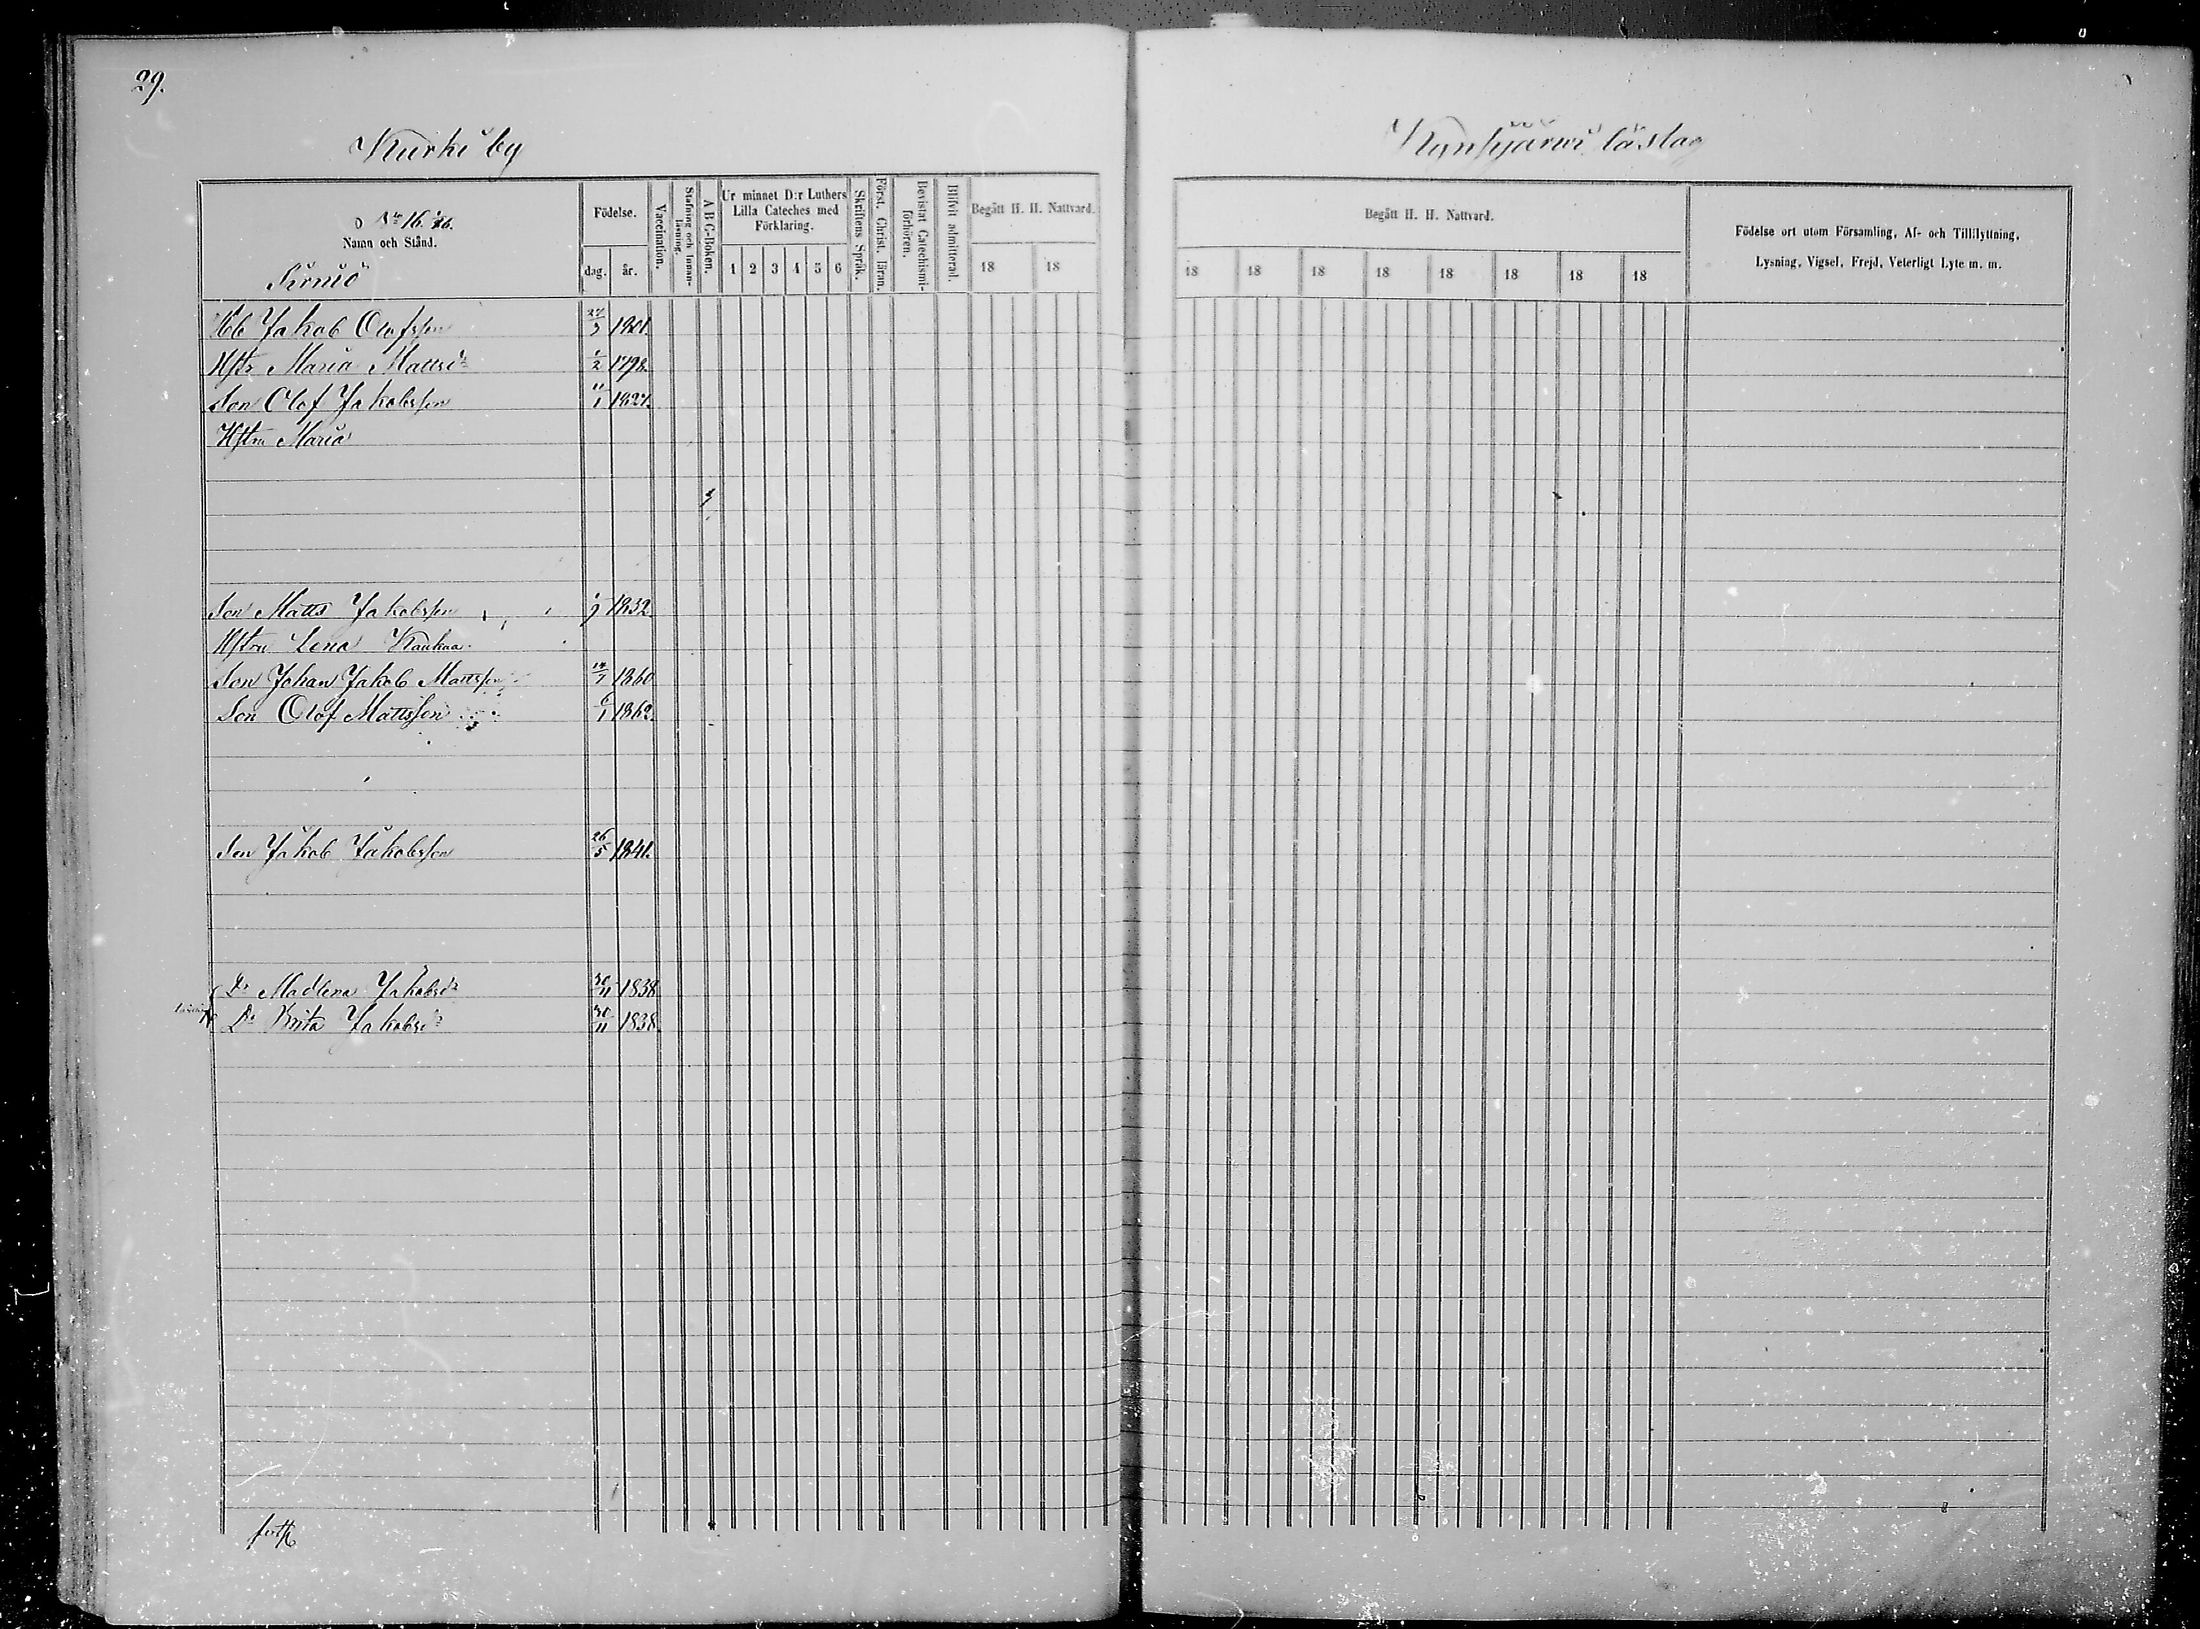 29.
Kurki by
läslag
No 16. 16.
Namn och Stånd.
Födelse.
dag. år.
Vaccination.
Stafning och Innanläsning.
A B C-Boken.
Ur minnet D:r Luthers Lilla Cateches med Förklaring.
1 2 3 4 5 6
Skriftens Språk.
Först. Christ. läran.
Bevistat Catechismiförhören.
Blifvit admitterad.
Begått H. H. Nattvard.
18 18
Begått H. H. Nattvard.
18 18 18 18 18 18 18 18
Födelse ort utom Församling, Af- och Tillflyttning,
Lysning, Vigsel, Frejd, Veterligt Lyte m. m.
Jakob Olofsson 27/3
Maria Mattsdr 1/2 1798.
Son Olof Jakobsson 11/1 1827.
Hstru Maria
Son Matts Jakobsson 1/9 1832
Hstru Lena
Son Johan Jakob Mattsson 1860
Son Olof Mattsson 6/1 1862
Son Jakob Jakobsson 26/5 1841.
Dr Madlena Jakobsdr 30/11 1838
Dr Brita Jakobsdr 30/11 1838